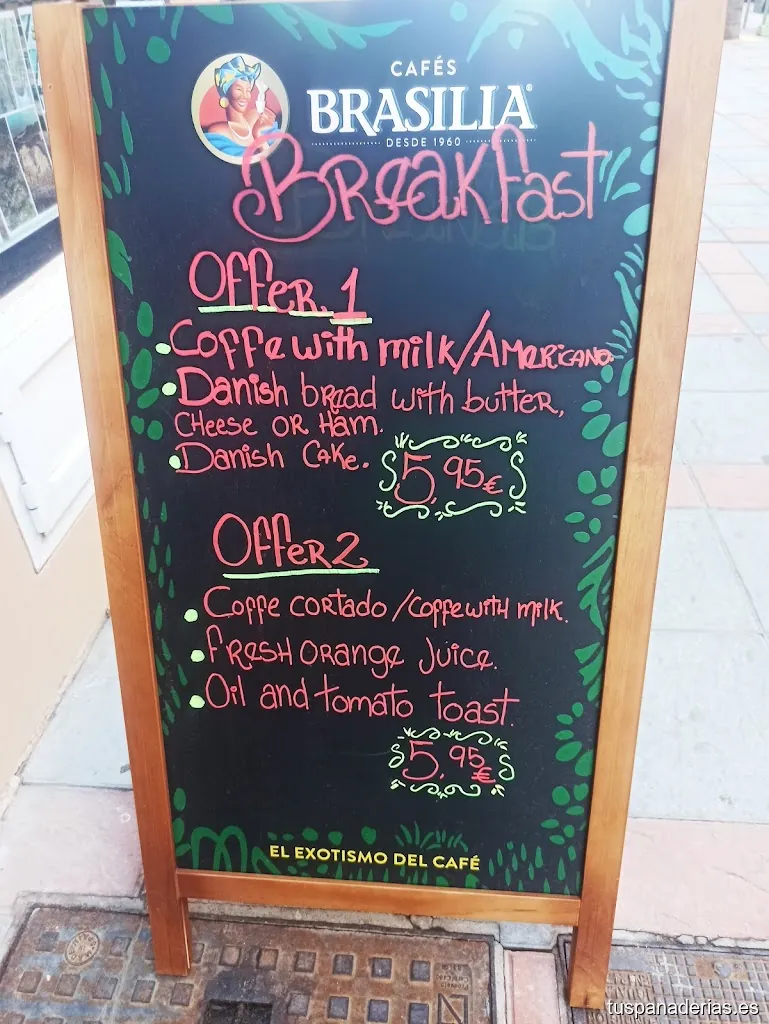 CAFÉS
BRASILIA
DESDE 1960
Breakfast
Offer 1
Coffe with milk/Americano.
Danish bread with butter,
cheese or Ham.
Danish Cake.
5,95€
Offer 2
Coffe cortado/coffe with milk.
Fresh orange juice.
Oil and tomato toast.
5,95€
EL EXOTISMO DEL CAFÉ
tuspanaderias.es